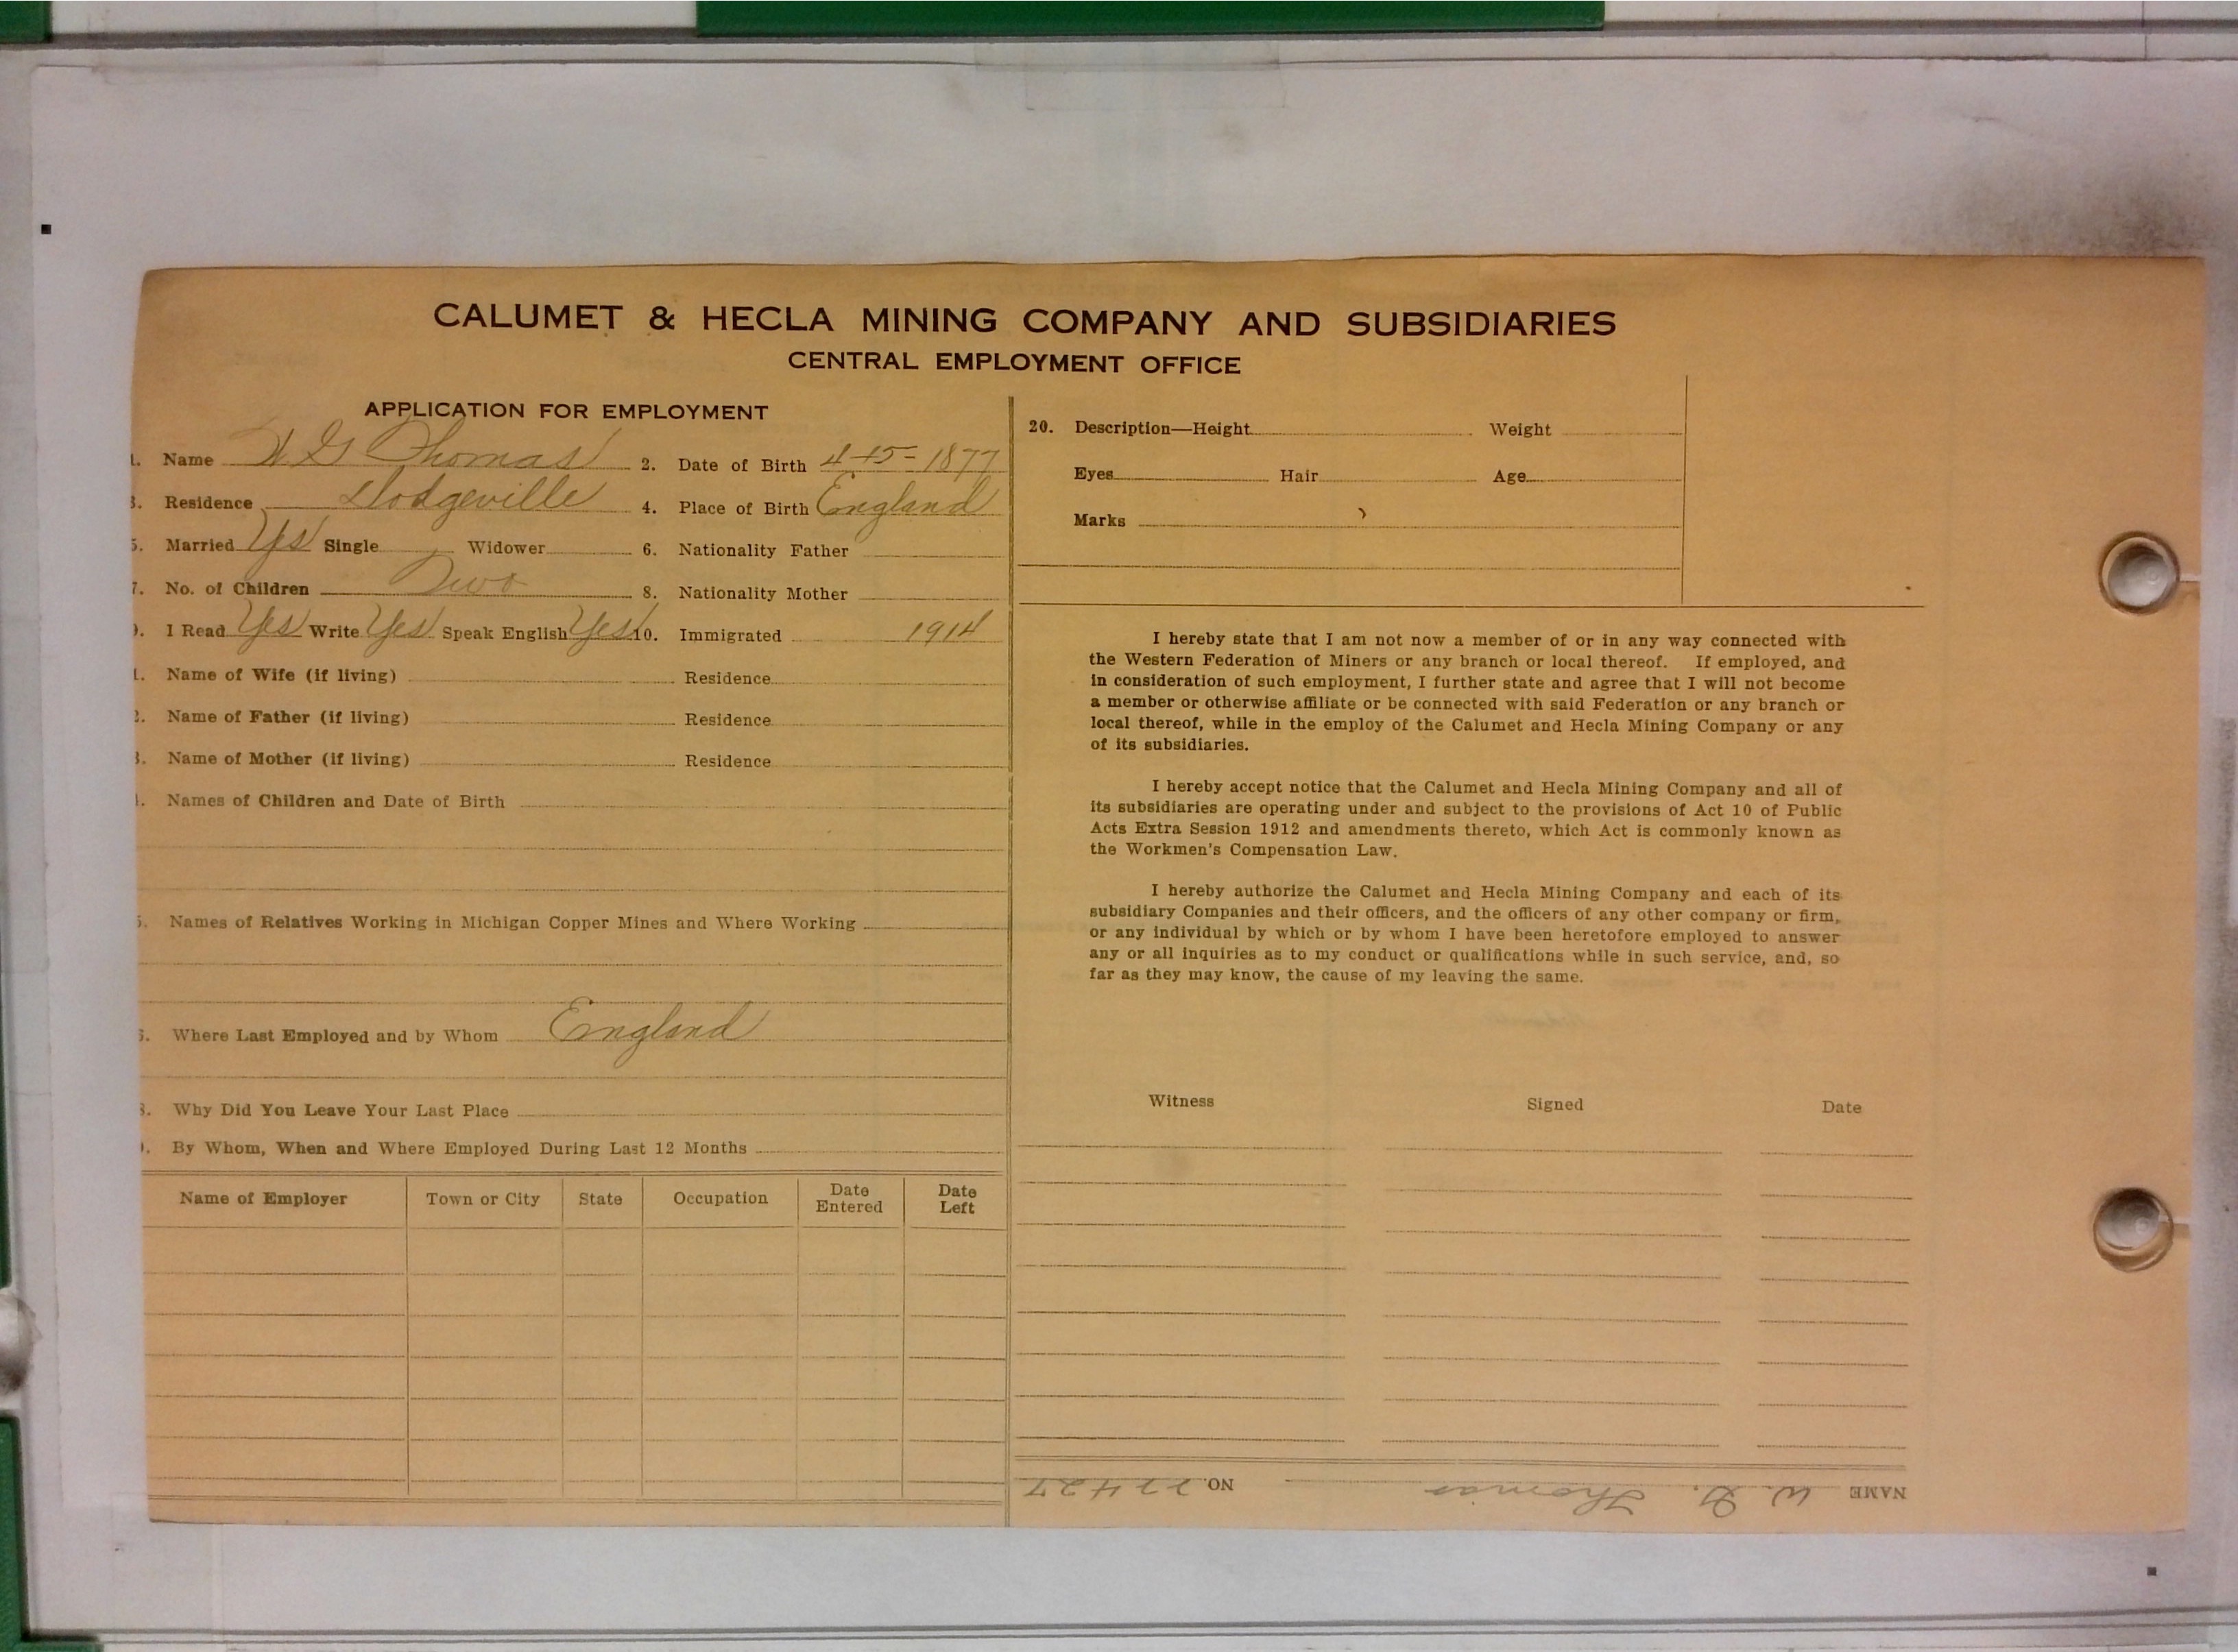 CALUMET & HECLA MINING COMPANY AND SUBSIDIARIES
CENTRAL EMPLOYMENT OFFICE
APPLICATION FOR EMPLOYMENT
1. Name W G Thomas 2. Date of Birth 4-15-1877
3. Residence Dodgeville 4. Place of Birth England
5. Married Yes Single Widower 6. Nationality Father
7. No. of Children Two 8. Nationality Mother
9. I Read Yes Write Yes Speak English Yes 10. Immigrated 1914
1. Name of Wife (if living) Residence
2. Name of Father (if living) Residence
3. Name of Mother (if living) Residence
4. Names of Children and Date of Birth
5. Names of Relatives Working in Michigan Copper Mines and Where Working
6. Where Last Employed and by Whom England
8. Why Did You Leave Your Last Place
9. By Whom, When and Where Employed During Last 12 Months
Name of Employer Town or City State Occupation Date Entered Date Left
20. Description—Height Weight
Eyes Hair Age
Marks
I hereby state that I am not now a member of or in any way connected with
the Western Federation of Miners or any branch or local thereof. If employed, and
in consideration of such employment, I further state and agree that I will not become
a member or otherwise affiliate or be connected with said Federation or any branch or
local thereof, while in the employ of the Calumet and Hecla Mining Company or any
of its subsidiaries.
I hereby accept notice that the Calumet and Hecla Mining Company and all of
its subsidiaries are operating under and subject to the provisions of Act 10 of Public
Acts Extra Session 1912 and amendments thereto, which Act is commonly known as
the Workmen's Compensation Law.
I hereby authorize the Calumet and Hecla Mining Company and each of its
subsidiary Companies and their officers, and the officers of any other company or firm,
or any individual by which or by whom I have been heretofore employed to answer
any or all inquiries as to my conduct or qualifications while in such service, and, so
far as they may know, the cause of my leaving the same.
Witness Signed Date
NAME W. G. Thomas NO. 22427